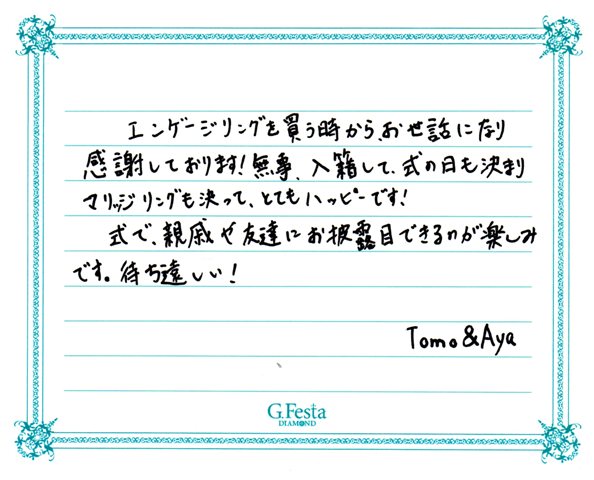 エンゲージリングを買う時から、お世話になり
感謝しております!無事、入籍して、式の日も決まり
マリッジリングも決って、とてもハッピーです!
式で、親戚や友達にお披露目できるのが楽しみ
です。待ち遠しい!
Tomo&Aya
G.Festa
DIAMOND